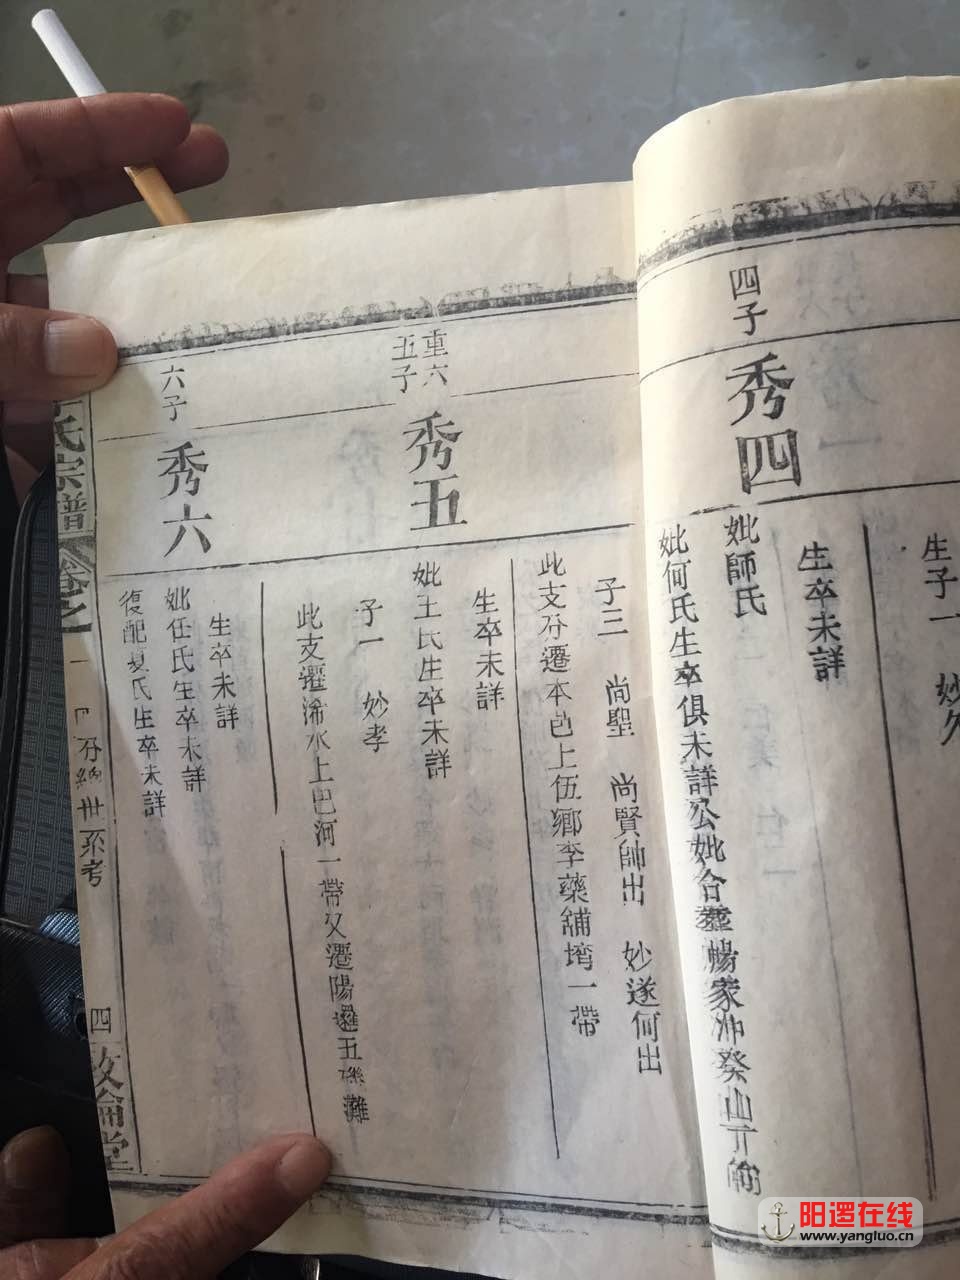 生子一 妙久
四子
秀四
生卒未詳
妣師氏
妣何氏生卒俱未詳公妣合塟楊家沖癸山丁向
子三 尚聖 尚賢師出 妙遂何出
此支分遷本邑上伍鄉李藥舖塆一帶
重六
五子
秀五
生卒未詳
妣王氏生卒未詳
子一 妙孝
此支遷浠水上巴河一帶又遷陽邏五磯灘
六子
秀六
生卒未詳
妣任氏生卒未詳
復配夏氏生卒未詳
李氏宗譜
卷之一
分編世系考
四
敦倫堂
阳逻在线
www.yangluo.cn